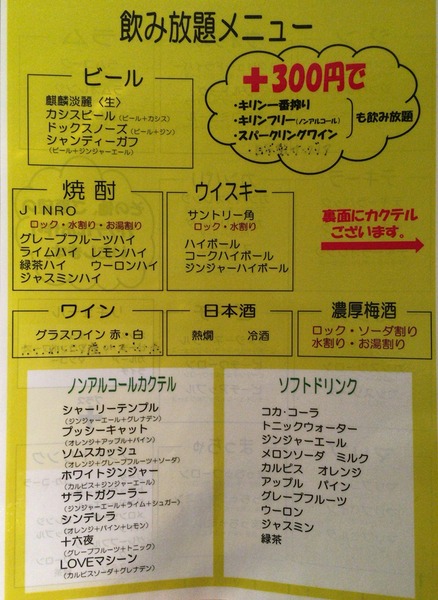 飲み放題メニュー
ビール
麒麟淡麗〈生〉
カシスビール(ビール+カシス)
ドックスノーズ(ビール+ジン)
シャンディーガフ
(ビール+ジンジャーエール)
+300円で
・キリン一番搾り
・キリンフリー(ノンアルコール)
・スパークリングワイン
も飲み放題
焼酎
JINRO
ロック・水割り・お湯割り
グレープフルーツハイ
ライムハイ レモンハイ
緑茶ハイ ウーロンハイ
ジャスミンハイ
ウイスキー
サントリー角
ロック・水割り
ハイボール
コークハイボール
ジンジャーハイボール
裏面にカクテル
ございます。
ワイン
グラスワイン 赤・白
日本酒
熱燗 冷酒
濃厚梅酒
ロック・ソーダ割り
水割り・お湯割り
ノンアルコールカクテル
シャーリーテンプル
(ジンジャーエール+グレナデン)
プッシーキャット
(オレンジ+アップル+パイン)
ソムスカッシュ
(オレンジ+グレープフルーツ+ソーダ)
ホワイトジンジャー
(カルピス+ジンジャーエール)
サラトガクーラー
(ジンジャーエール+ライム+シュガー)
シンデレラ
(オレンジ+パイン+レモン)
十六夜
(グレープフルーツ+トニック)
LOVEマシーン
(カルピスソーダ+グレナデン)
ソフトドリンク
コカ・コーラ
トニックウォーター
ジンジャーエール
メロンソーダ ミルク
カルピス オレンジ
アップル パイン
グレープフルーツ
ウーロン
ジャスミン
緑茶